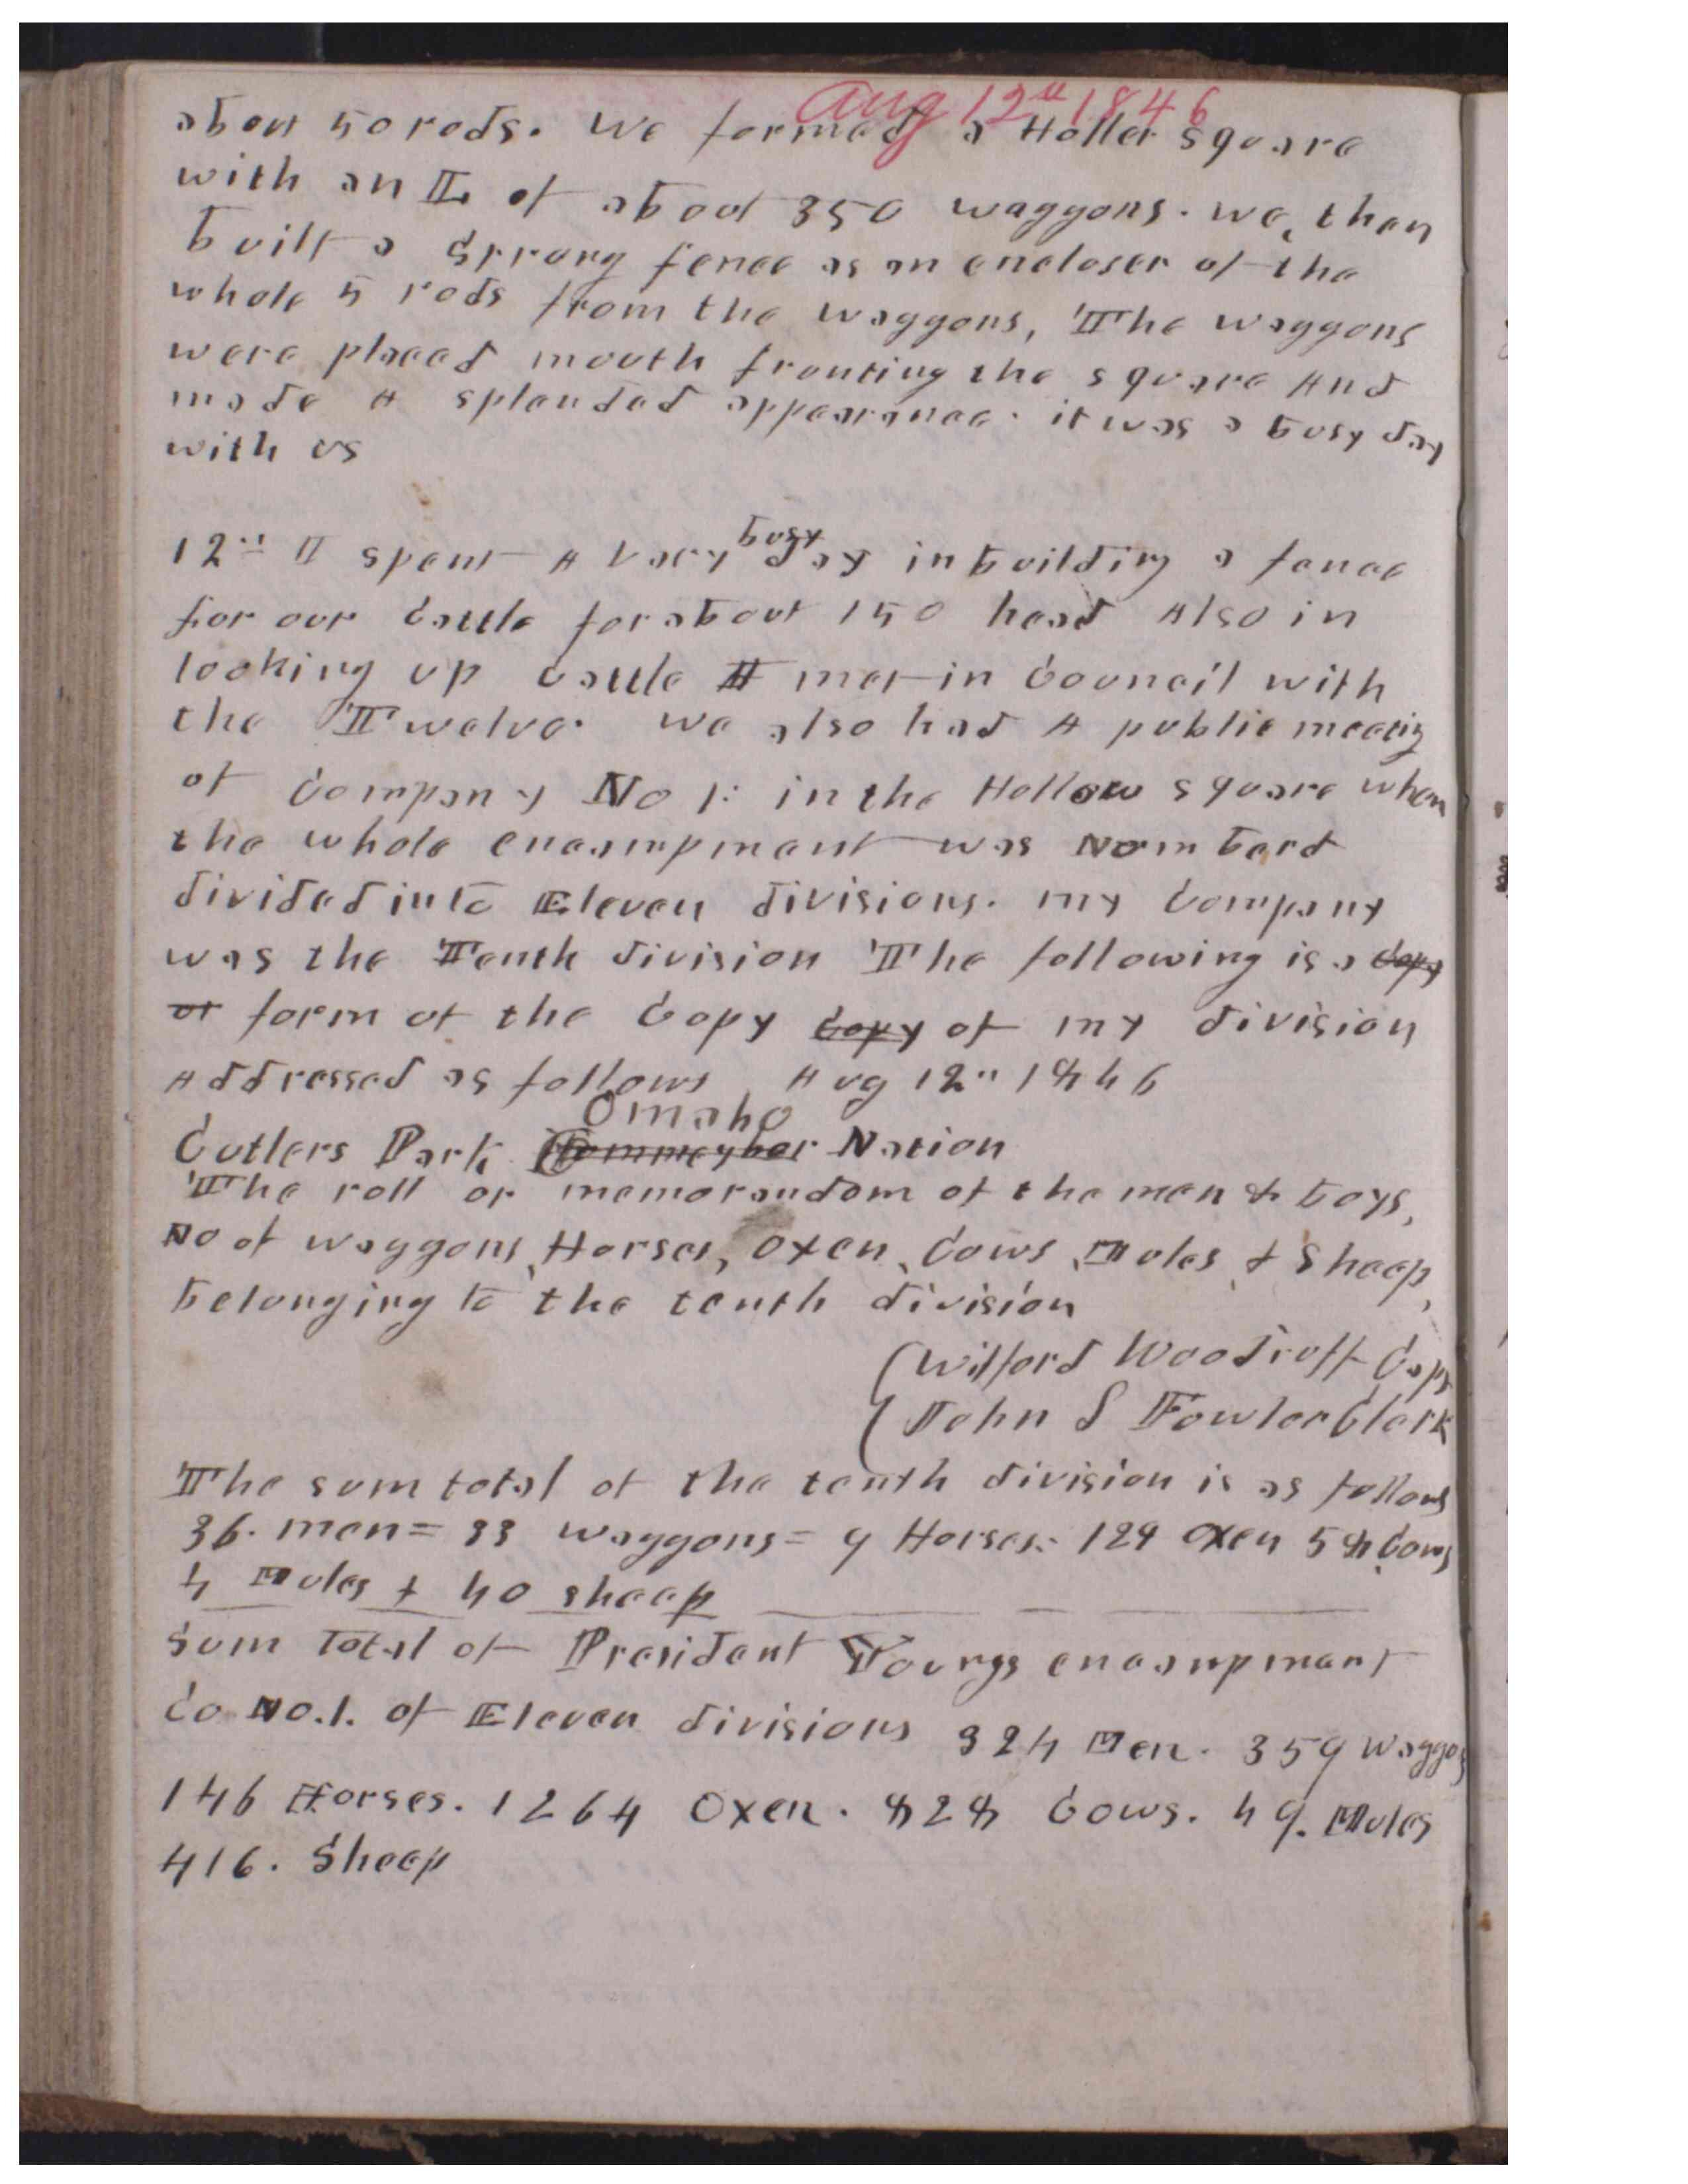 Aug 12th 1846
about 40 rods. We formed a Holler square
with an L of about 350 waggons. we then
built a strong fence as an encloser of the
whole 4 rods from the waggons, The waggons
were placed mouth fronting the square And
made A splendad appearance. it was a busy day
with us
12th I spent A vary busy day in building a fence
for our Cattle for about 140 head Also in
looking up cattle I met in Council with
the Twelve. we also had A public meetig
of Company No 1. in the Hollow square when
the whole encampment was Numbard
divided into Eleven divisions. my Company
was the Tenth division The following is a Copy
of form of the Copy Copy of my division
Addressed as follows Aug 12th 1846
Omaho
Cutlers Park Nation
The roll or memorandom of the men & boys,
No of waggons, Horses, Oxen, Cows, Mules, & Sheep,
belonging to the tenth division
Wilford Woodruff Capt
John S Fowler Clerk
The sum total of the tenth division is as follows
36. men = 33 waggons = 9 Horses. 129 Oxen 58 Cows
4 Mules & 40 sheep
Sum Total of President Youngs encampment
Co No. 1. of Eleven divisions 324 Men. 359 Waggos
146 Horses. 1264 Oxen. 828 Cows. 49. Mules
416. Sheep